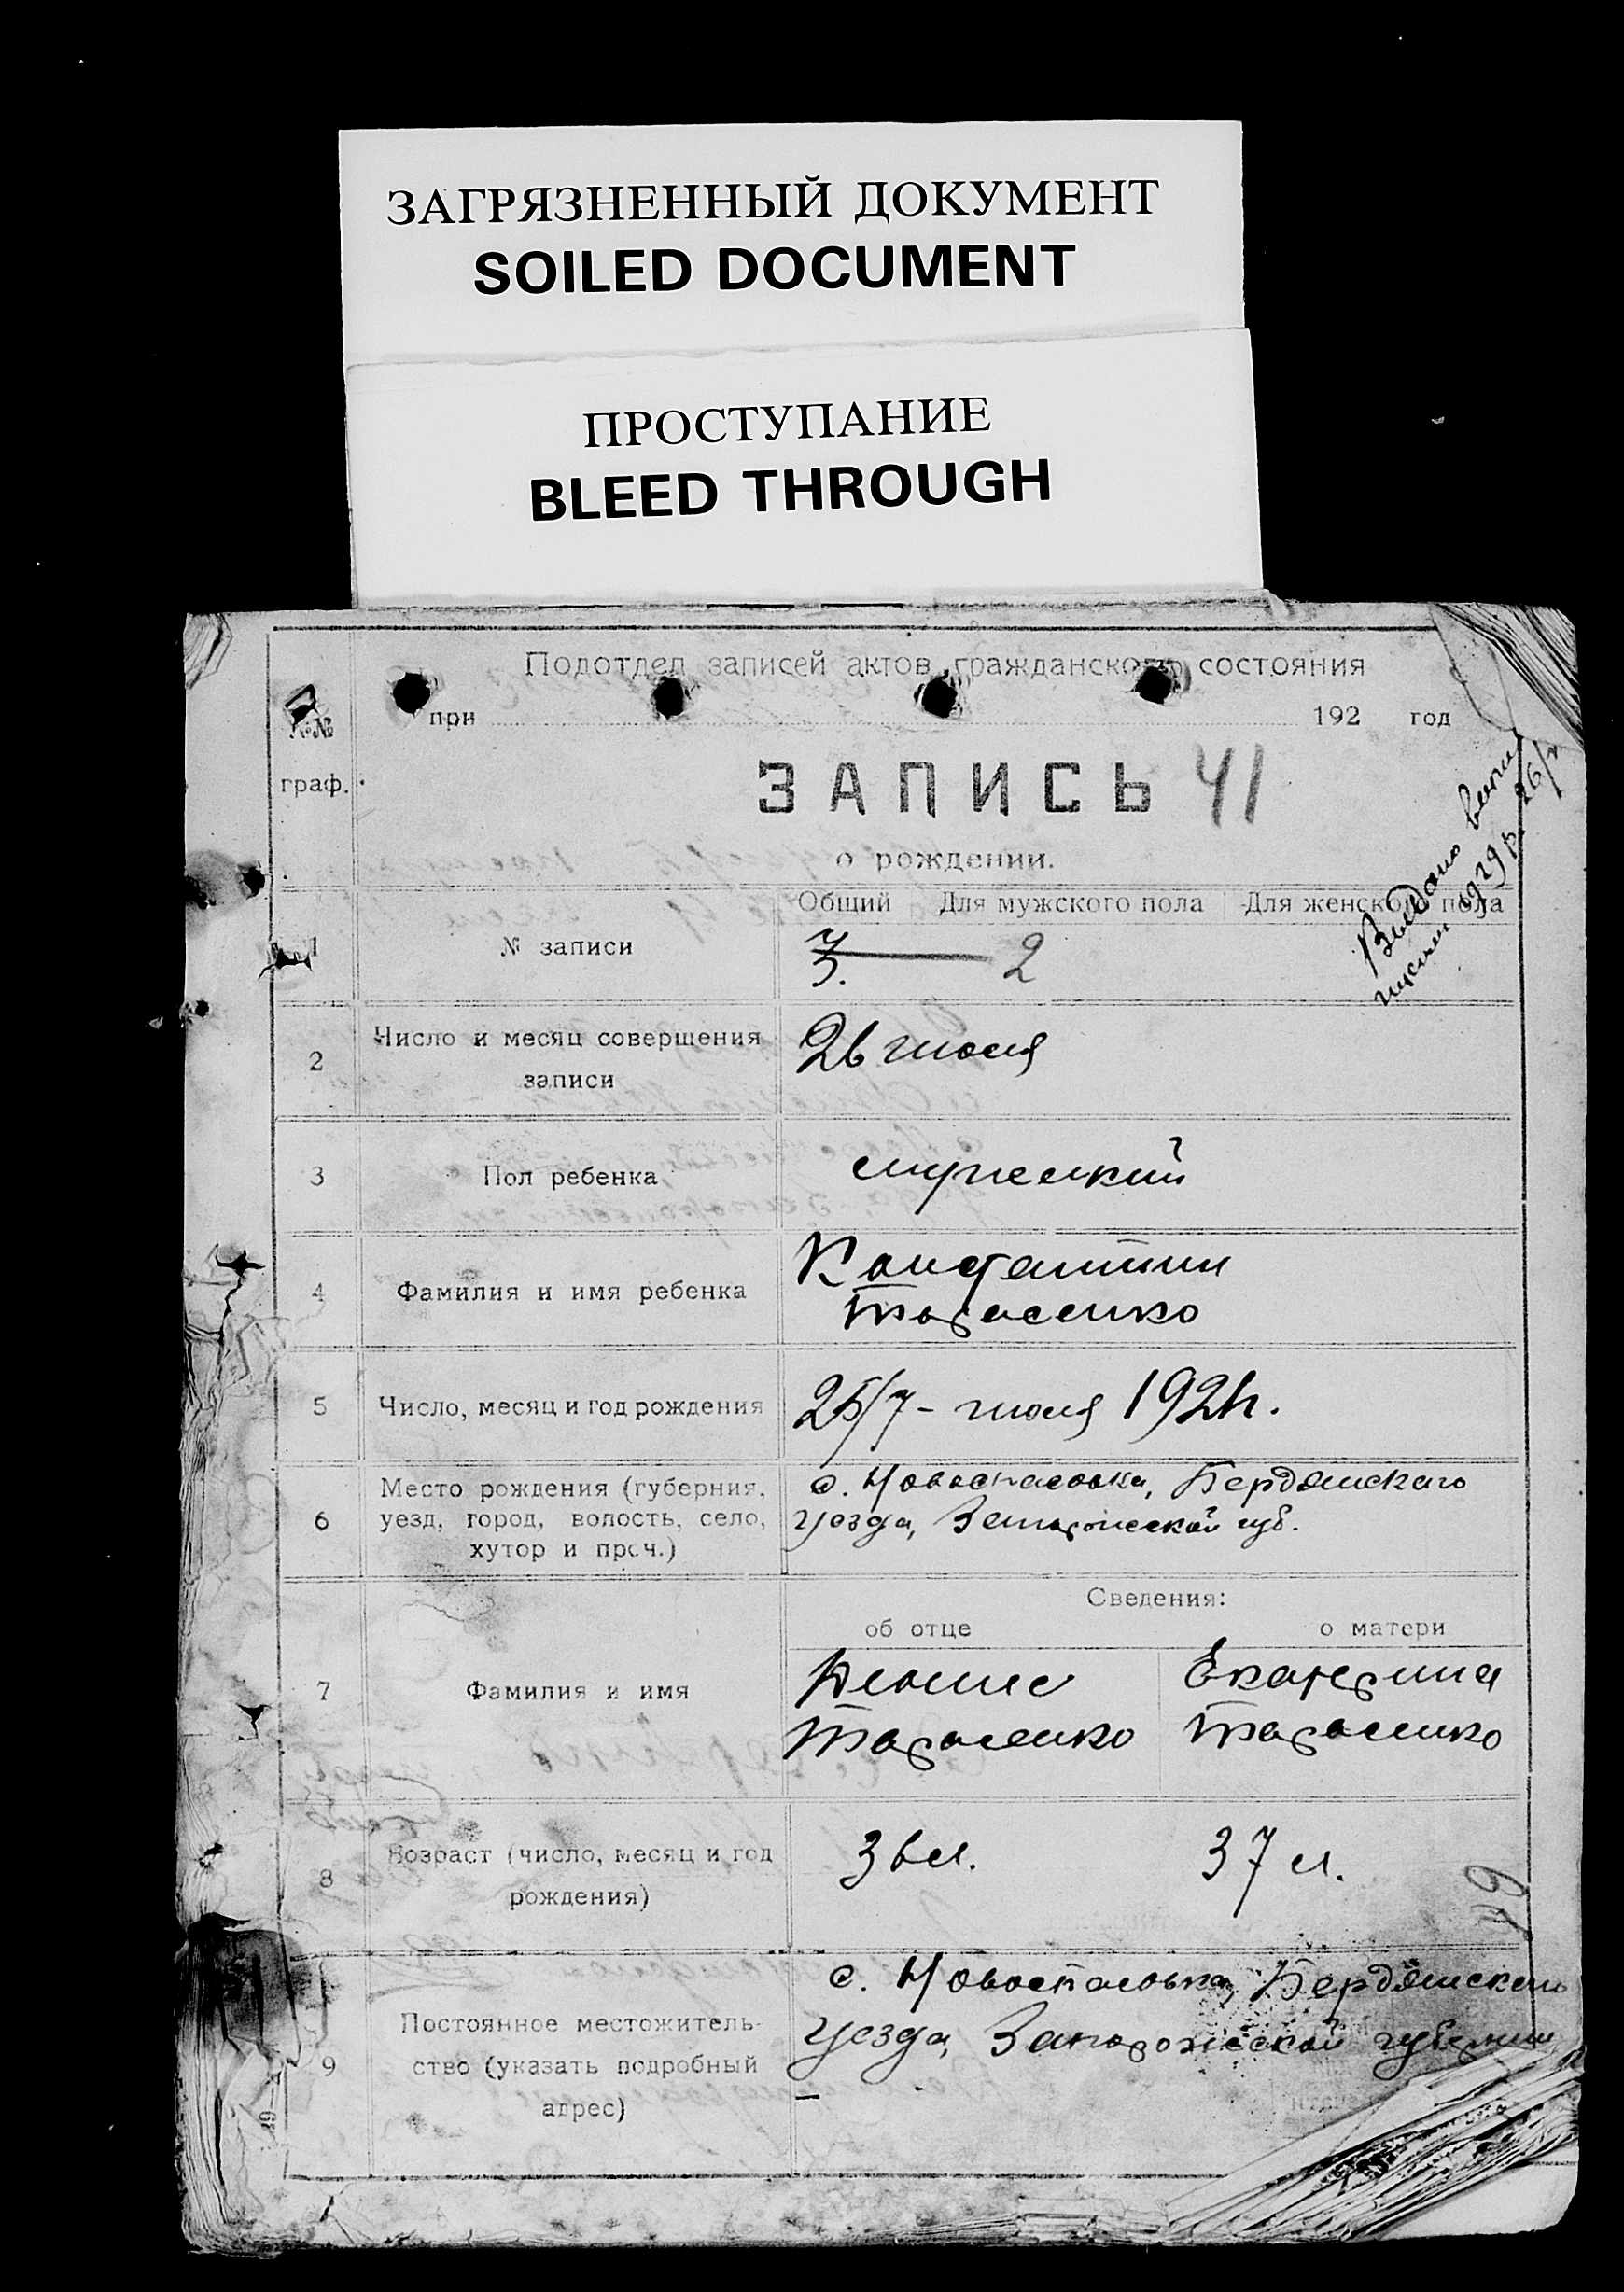 ЗАГРЯЗНЕННЫЙ ДОКУМЕНТ
SOILED DOCUMENT
ПРОСТУПАНИЕ
BLEED THROUGH
Подотдел записей актов гражданского состояния
№№
граф.
при 192 год
ЗАПИСЬ 41
о рождении.
Выдано
1929 р. 26/
Общий Для мужского пола Для женского пола
1 № записи 2
2 Число и месяц совершения
записи
26 июля
3 Пол ребенка мужеский
4 Фамилия и имя ребенка
Константин
Тарасенко
5 Число, месяц и год рождения 25/7 - июля 192
6 Место рождения (губерния,
уезд, город, волость, село,
хутор и проч.)
с. Новоспасовка, Бердянскаго
уезда, Запорожской губ.
Сведения:
об отце о матери
7 Фамилия и имя
Денис Екатерина
Тарасенко Тарасенко
8 Возраст (число, месяц и год
рождения)
36 л. 37 л.
9 Постоянное местожитель-
ство (указать подробный
адрес)
с. Новоспасовка, Бердянскаго
уезда, Запорожской губернии